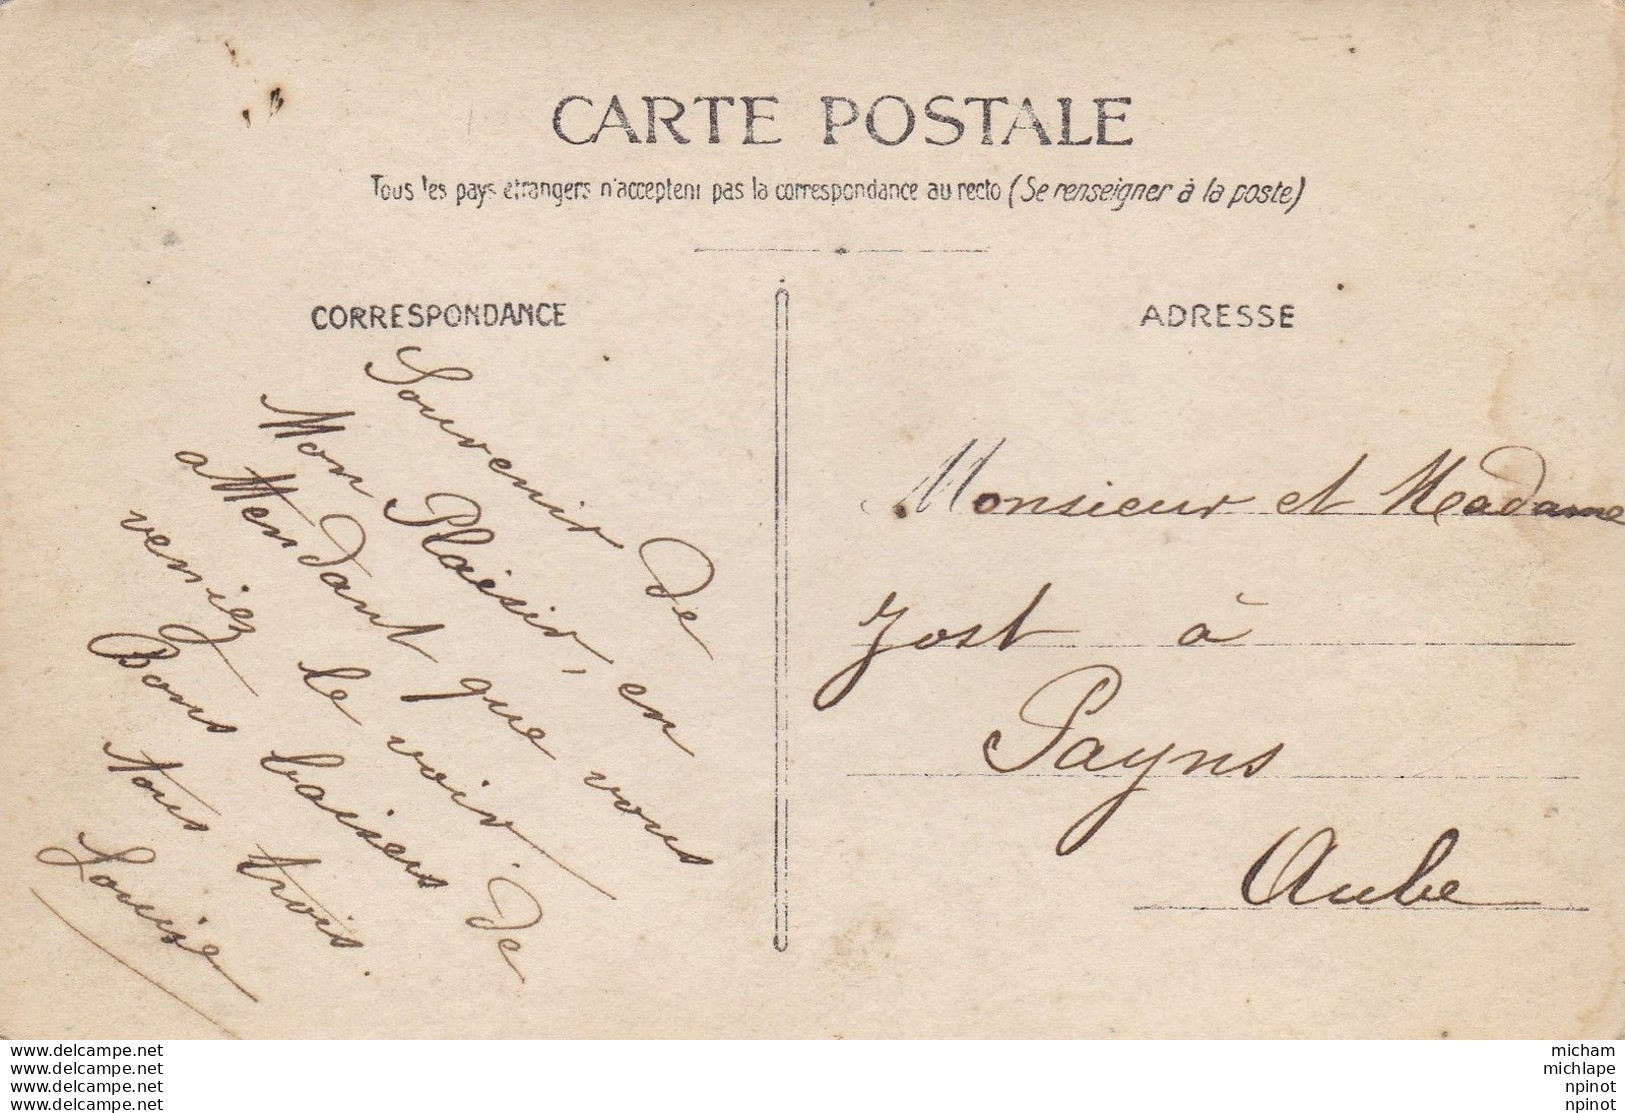 CARTE POSTALE
Tous les pays étrangers n'acceptent pas la correspondance au recto (Se renseigner à la poste)
CORRESPONDANCE
Souvenir de
Mon Plaisir, en
attendant que vous
veniez le voir.
Bons baisers de
nous trois.
Louise
ADRESSE
Monsieur et Madame
Jost à
Payns
Aube
www.delcampe.net
www.delcampe.net
www.delcampe.net
www.delcampe.net
micham
michlape
npinot
npinot